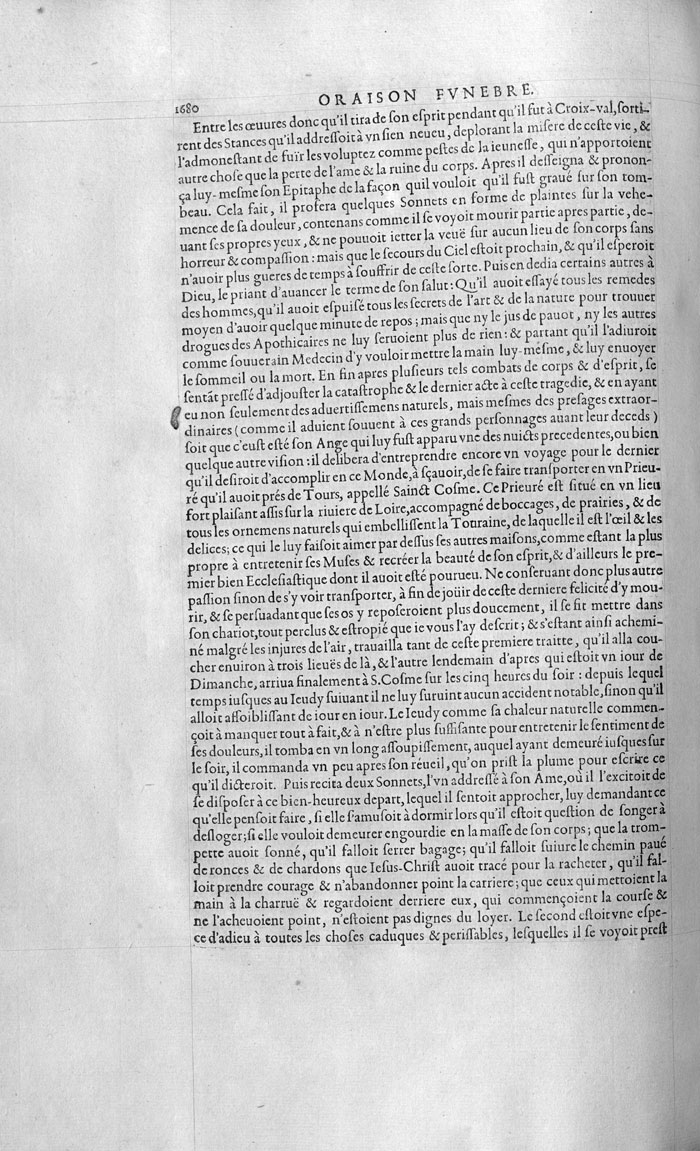 ORAISON FVNEBRE.
1680
Entre les œuures donc qu'il tira de son esprit pendant qu'il fut à Croix-val, sorti-
rent des Stances qu'il addressoit à vn sien neueu, deplorant la misere de ceste vie, &
l'admonestant de fuïr les voluptez comme pestes de la ieunesse, qui n'apportoient
autre chose que la perte de l'ame & la ruine du corps. Apres il desseigna & pronon-
ça luy-mesme son Epitaphe de la façon quil vouloit qu'il fust graué sur son tom-
beau. Cela fait, il profera quelques Sonnets en forme de plaintes sur la vehe-
mence de sa douleur, contenans comme il se voyoit mourir partie apres partie, de-
uant ses propres yeux, & ne pouuoit ietter la veuë sur aucun lieu de son corps sans
horreur & compassion: mais que le secours du Ciel estoit prochain, & qu'il esperoit
n'auoir plus gueres de temps à souffrir de ceste sorte. Puis en dedia certains autres à
Dieu, le priant d'auancer le terme de son salut: Qu'il auoit essayé tous les remedes
des hommes, qu'il auoit espuisé tous les secrets de l'art & de la nature pour trouuer
moyen d'auoir quelque minute de repos; mais que ny le jus de pauot, ny les autres
drogues des Apothicaires ne luy seruoient plus de rien: & partant qu'il l'adiuroit
comme souuerain Medecin d'y vouloir mettre la main luy-mesme, & luy enuoyer
le sommeil ou la mort. En fin apres plusieurs tels combats de corps & d'esprit, se
sentãt pressé d'adjouster la catastrophe & le dernier acte à ceste tragedie, & en ayant
eu non seulement des aduertissemens naturels, mais mesmes des presages extraor-
dinaires (comme il aduient souuent à ces grands personnages auant leur deceds)
soit que c'eust esté son Ange qui luy fust apparu vne des nuicts precedentes, ou bien
quelque autre vision: il delibera d'entreprendre encore vn voyage pour le dernier
qu'il desiroit d'accomplir en ce Monde, à sçauoir, de se faire transporter en vn Prieu-
ré qu'il auoit prés de Tours, appellé Sainct Cosme. Ce Prieuré est situé en vn lieu
fort plaisant assis sur la riuiere de Loire, accompagné de boccages, de prairies, & de
tous les ornemens naturels qui embellissent la Touraine, de laquelle il est l'œil & les
delices; ce qui le luy faisoit aimer par dessus ses autres maisons, comme estant la plus
propre à entretenir ses Muses & recréer la beauté de son esprit, & d'ailleurs le pre-
mier bien Ecclesiastique dont il auoit esté pourueu. Ne conseruant donc plus autre
passion sinon de s'y voir transporter, à fin de joüir de ceste derniere felicité d'y mou-
rir, & se persuadant que ses os y reposeroient plus doucement, il se fit mettre dans
son chariot, tout perclus & estropié que ie vous l'ay descrit; & s'estant ainsi achemi-
né malgré les injures de l'air, trauailla tant de ceste premiere traitte, qu'il alla cou-
cher enuiron à trois lieuës de là, & l'autre lendemain d'apres qui estoit vn iour de
Dimanche, arriua finalement à S. Cosme sur les cinq heures du soir: depuis lequel
temps iusques au Ieudy suiuant il ne luy suruint aucun accident notable, sinon qu'il
alloit affoiblissant de iour en iour. Le Ieudy comme sa chaleur naturelle commen-
çoit à manquer tout à fait, & à n'estre plus suffisante pour entretenir le sentiment de
ses douleurs, il tomba en vn long assoupissement, auquel ayant demeuré iusques sur
le soir, il commanda vn peu apres son réueil, qu'on prist la plume pour escrire ce
qu'il dicteroit. Puis recita deux Sonnets, l'vn addressé à son Ame, où il l'excitoit de
se disposer à ce bien-heureux depart, lequel il sentoit approcher, luy demandant ce
qu'elle pensoit faire, si elle s'amusoit à dormir lors qu'il estoit question de songer à
desloger; si elle vouloit demeurer engourdie en la masse de son corps; que la trom-
pette auoit sonné, qu'il falloit serrer bagage; qu'il falloit suiure le chemin paué
de ronces & de chardons que Iesus-Christ auoit tracé pour la racheter, qu'il fal-
loit prendre courage & n'abandonner point la carriere; que ceux qui mettoient la
main à la charruë & regardoient derriere eux, qui commençoient la course &
ne l'acheuoient point, n'estoient pas dignes du loyer. Le second estoit vne espe-
ce d'adieu à toutes les choses caduques & perissables, lesquelles il se voyoit prest